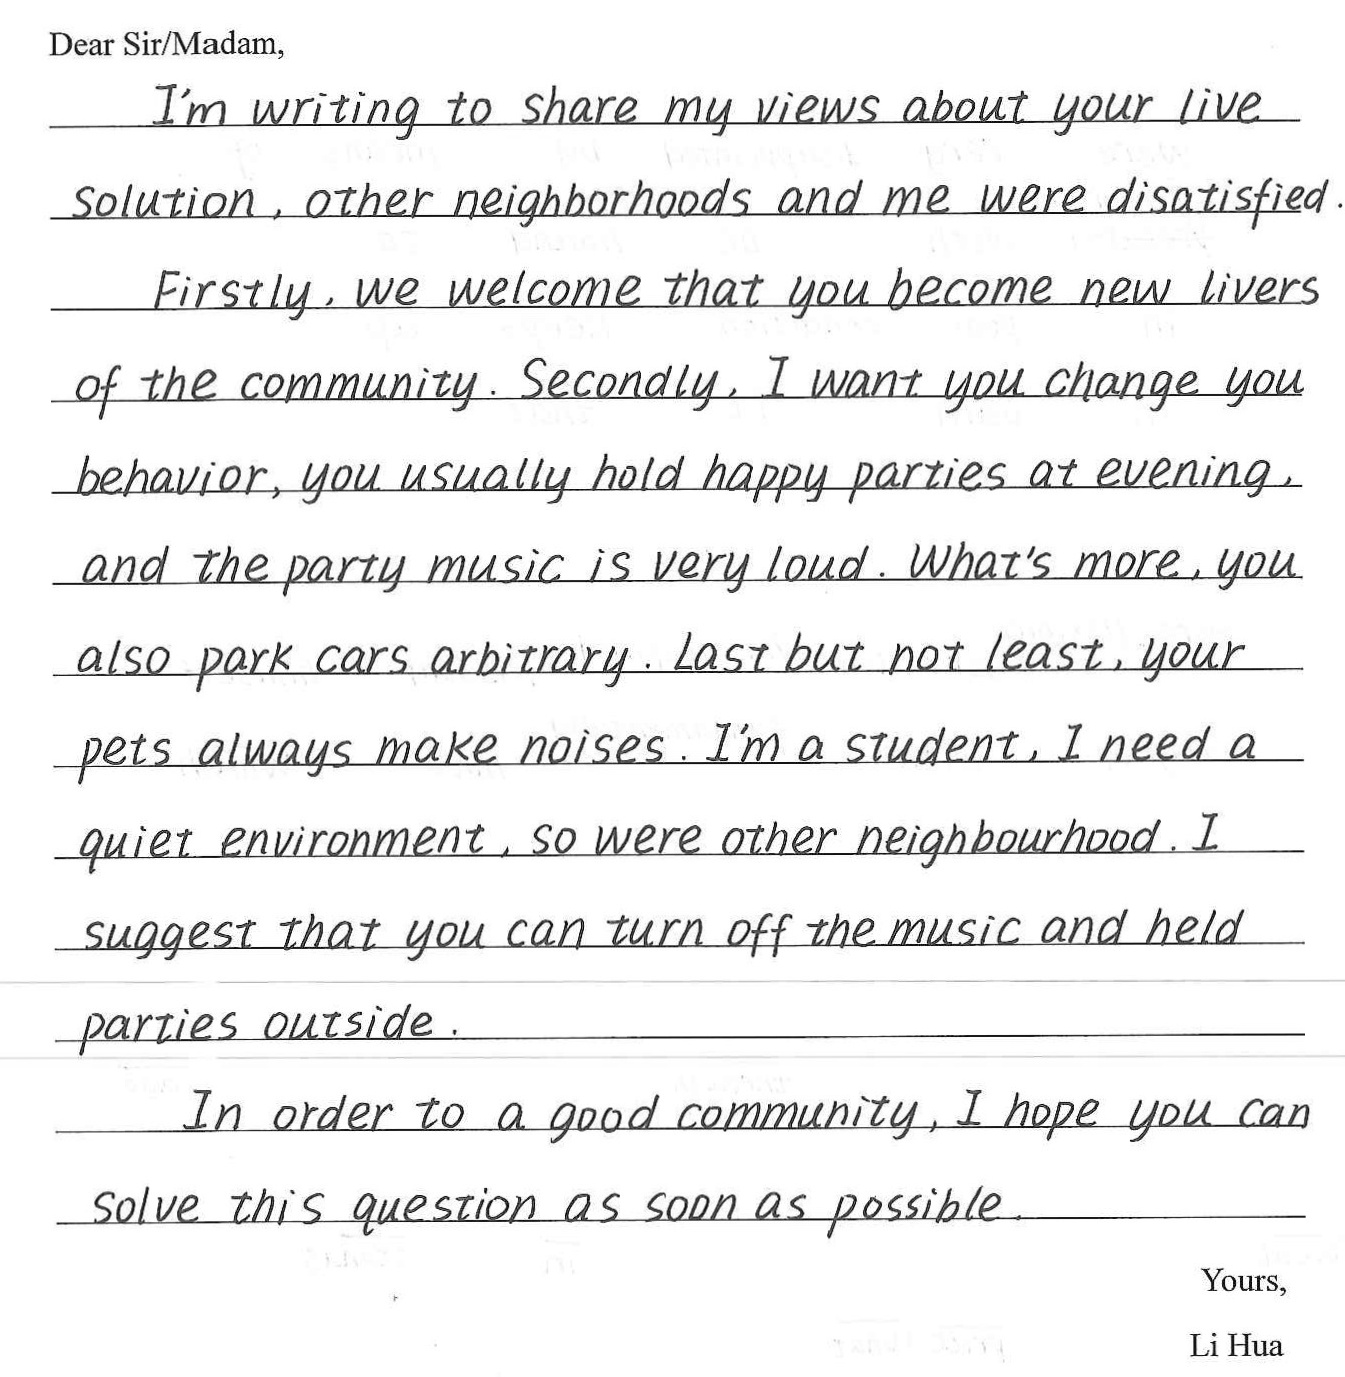 Dear Sir/Madam,
I'm writing to share my views about your live
solution, other neighborhoods and me were disatisfied.
Firstly, we welcome that you become new livers
of the community. Secondly, I want you change you
behavior, you usually hold happy parties at evening,
and the party music is very loud. What's more, you
also park cars arbitrary. Last but not least, your
pets always make noises. I'm a student, I need a
quiet environment, so were other neighbourhood. I
suggest that you can turn off the music and held
parties outside.
In order to a good community, I hope you can
solve this question as soon as possible.
Yours,
Li Hua